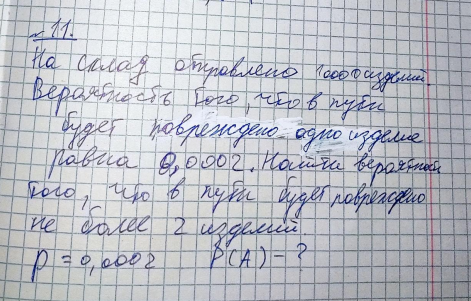 № 11.
На склад отправлено 10000 изделий.
Вероятность того, что в пути
будет повреждено одно изделие
равна 0,0002. Найти вероятность
того, что в пути будет повреждено
не более 2 изделий
p = 0,0002 P(A) - ?